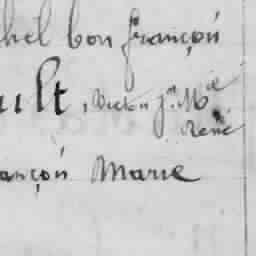 hel bon françon
ult, Victor Jn. Mie
René
ançon Marie